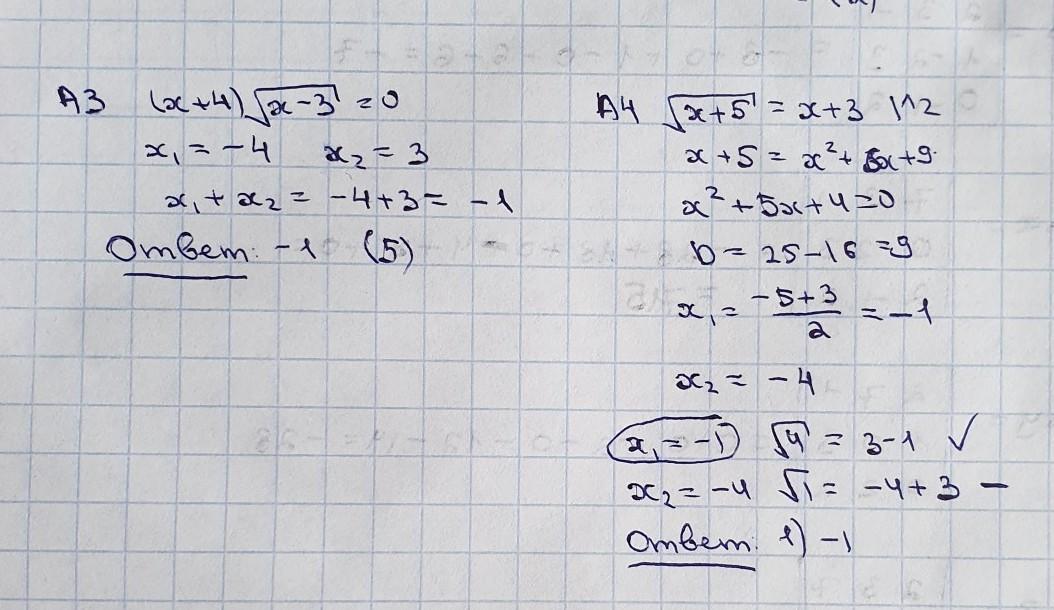 А3 (x+4)√(x-3) = 0
x₁ = -4 x₂ = 3
x₁ + x₂ = -4+3 = -1
Ответ: -1 (5)
А4 √(x+5) = x+3 |^2
x+5 = x²+6x+9
x²+5x+4=0
D = 25-16=9
x₁ = (-5+3)/2 = -1
x₂ = -4
x₁ = -1 √4 = 3-1 ✓
x₂ = -4 √1 = -4+3 —
Ответ: 1) -1